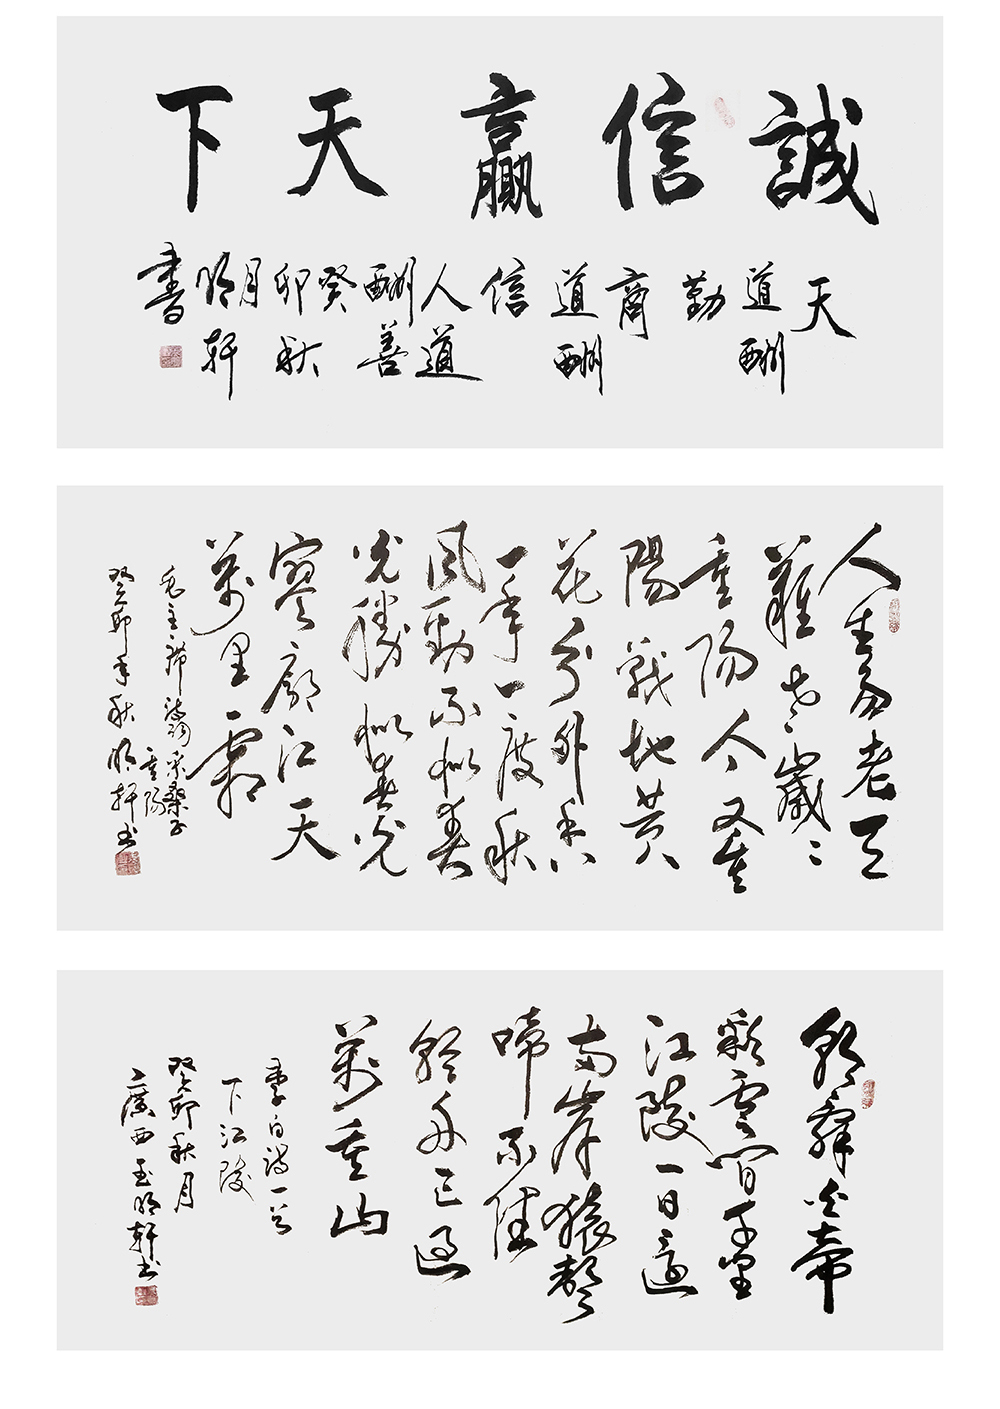 誠信贏天下
天
道酬
勤
商
道酬
信
人道
酬善
癸
卯秋
月
明軒
書
人生易老天
難老歲〻
重陽今又重
陽戰地黃
花分外香
一年一度秋
風勁不似春
光勝似春光
寥廓江天
萬里霜
毛主席詩詞采桑子
重陽
癸卯年秋明軒书
朝辭白帝
彩雲間千里
江陵一日還
兩岸猿聲
啼不住
輕舟已過
萬重山
李白詩一首
下江陵
癸卯秋月
廣西玉明軒书